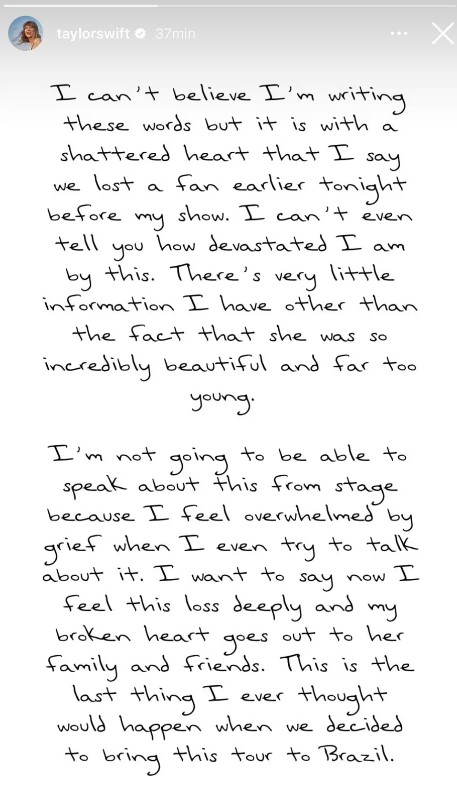 taylorswift 37min
I can't believe I'm writing
these words but it is with a
shattered heart that I say
we lost a fan earlier tonight
before my show. I can't even
tell you how devastated I am
by this. There's very little
information I have other than
the fact that she was so
incredibly beautiful and far too
young.
I'm not going to be able to
speak about this from stage
because I feel overwhelmed by
grief when I even try to talk
about it. I want to say now I
feel this loss deeply and my
broken heart goes out to her
family and friends. This is the
last thing I ever thought
would happen when we decided
to bring this tour to Brazil.